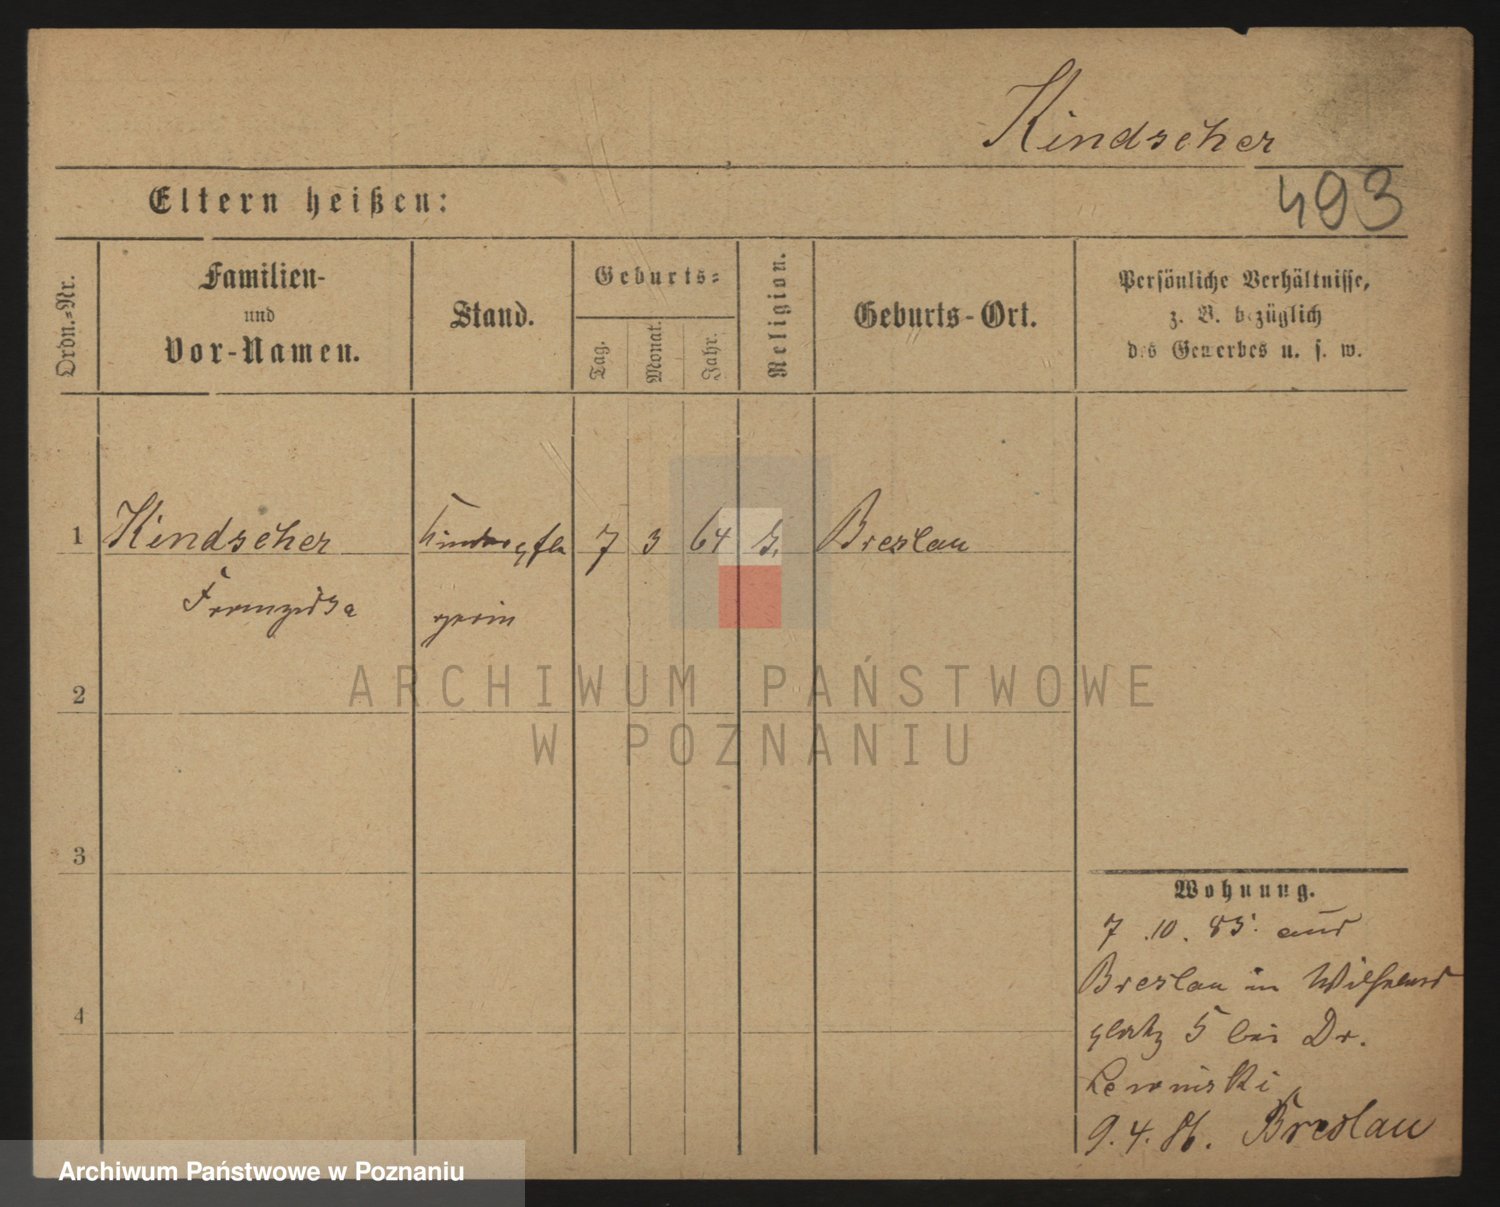 Kindscher
493
Eltern heißen:
Ordn.-Nr.
Familien-
und
Vor-Namen.
Stand.
Geburts-
Tag.
Monat.
Jahr.
Religion.
Geburts-Ort.
Persönliche Verhältnisse,
z. B. bezüglich
des Gewerbes u. s. w.
1
Kindscher
Kinderpfle
7
3
64
Breslau
Franziska
gerin
2
3
4
Wohnung.
7.10.85. aus
Breslau in Wilhelms
platz 5 bei Dr.
Lewinski
9.4.86. Breslau
ARCHIWUM PAŃSTWOWE
W POZNANIU
Archiwum Państwowe w Poznaniu